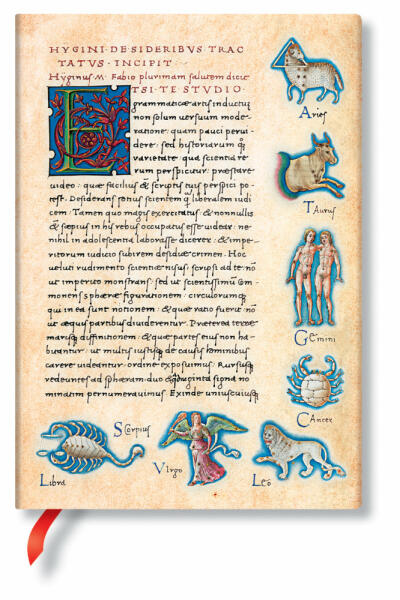 HYGINI·DE·SIDERIBVS·TRAC
TATVS·INCIPIT·
Hyginus·M·Fabio plurimam salutem dicit
ETSI·TE·STUDIO·
grammaticæ artis inductū
non solum uersuum mode-
ratione: quam pauci perui-
dere: sed historiarum q̨
varietate: qua scientia re-
rum perspicitur: præstare
uideo: quæ facilius & scriptis tuis perspici po-
test. Desiderans potius scientem q̄ liberalem iudi
cem. Tamen quo magis exercitatus: & nonnullis
& sæpius in his rebus occupatus esse uidear: ne
nihil in adolescentia laborasse dicerer: & impe-
ritorum iudicio subirem desidiæ crimen. Hoc
uelut rudimento scientiæ nisus scripsi ad te: nō
ut imperito monstrans: sed ut scientissimū com
monens sphæræ figurationem: circulorumq̨
qui in ea sunt notionem: & quæ ratio fuerit: nō
ut æquis partibus diuiderentur. Præterea terræ
marisq̨ diffinitionem: & quæ partes eius non ha-
buantur: ut multis iustisq̨ de causis hominibus
carere uideantur: ordine exposuimus. Rursusq̨
redeuntes ad sphæram: duo & quadraginta signa nō
minatim pernumerauimus. Exinde uniuscuiusq̨
Aries
Taurus
GEmini
CAncer
SCorpius
Libra
Virgo
LEo